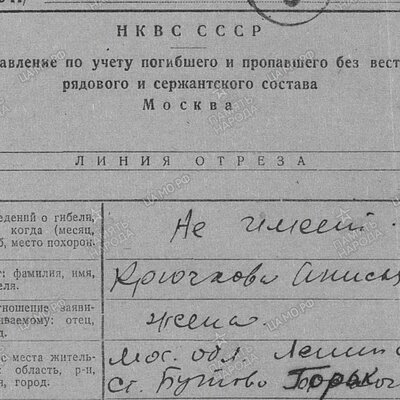 НКВС СССР
авление по учету погибшего и пропавшего без вест
рядового и сержантского состава
Москва
ЛИНИЯ ОТРЕЗА
едений о гибели,
когда (месяц,
б, место похорон.
Не имеет.
: фамилия, имя,
еля.
Крючкова Анись
ношение заяви-
ваемому: отец,
д.
жена.
е места житель-
: область, р-н,
я, город.
Мос. обл. Ленинс
ст. Бутово Горьк